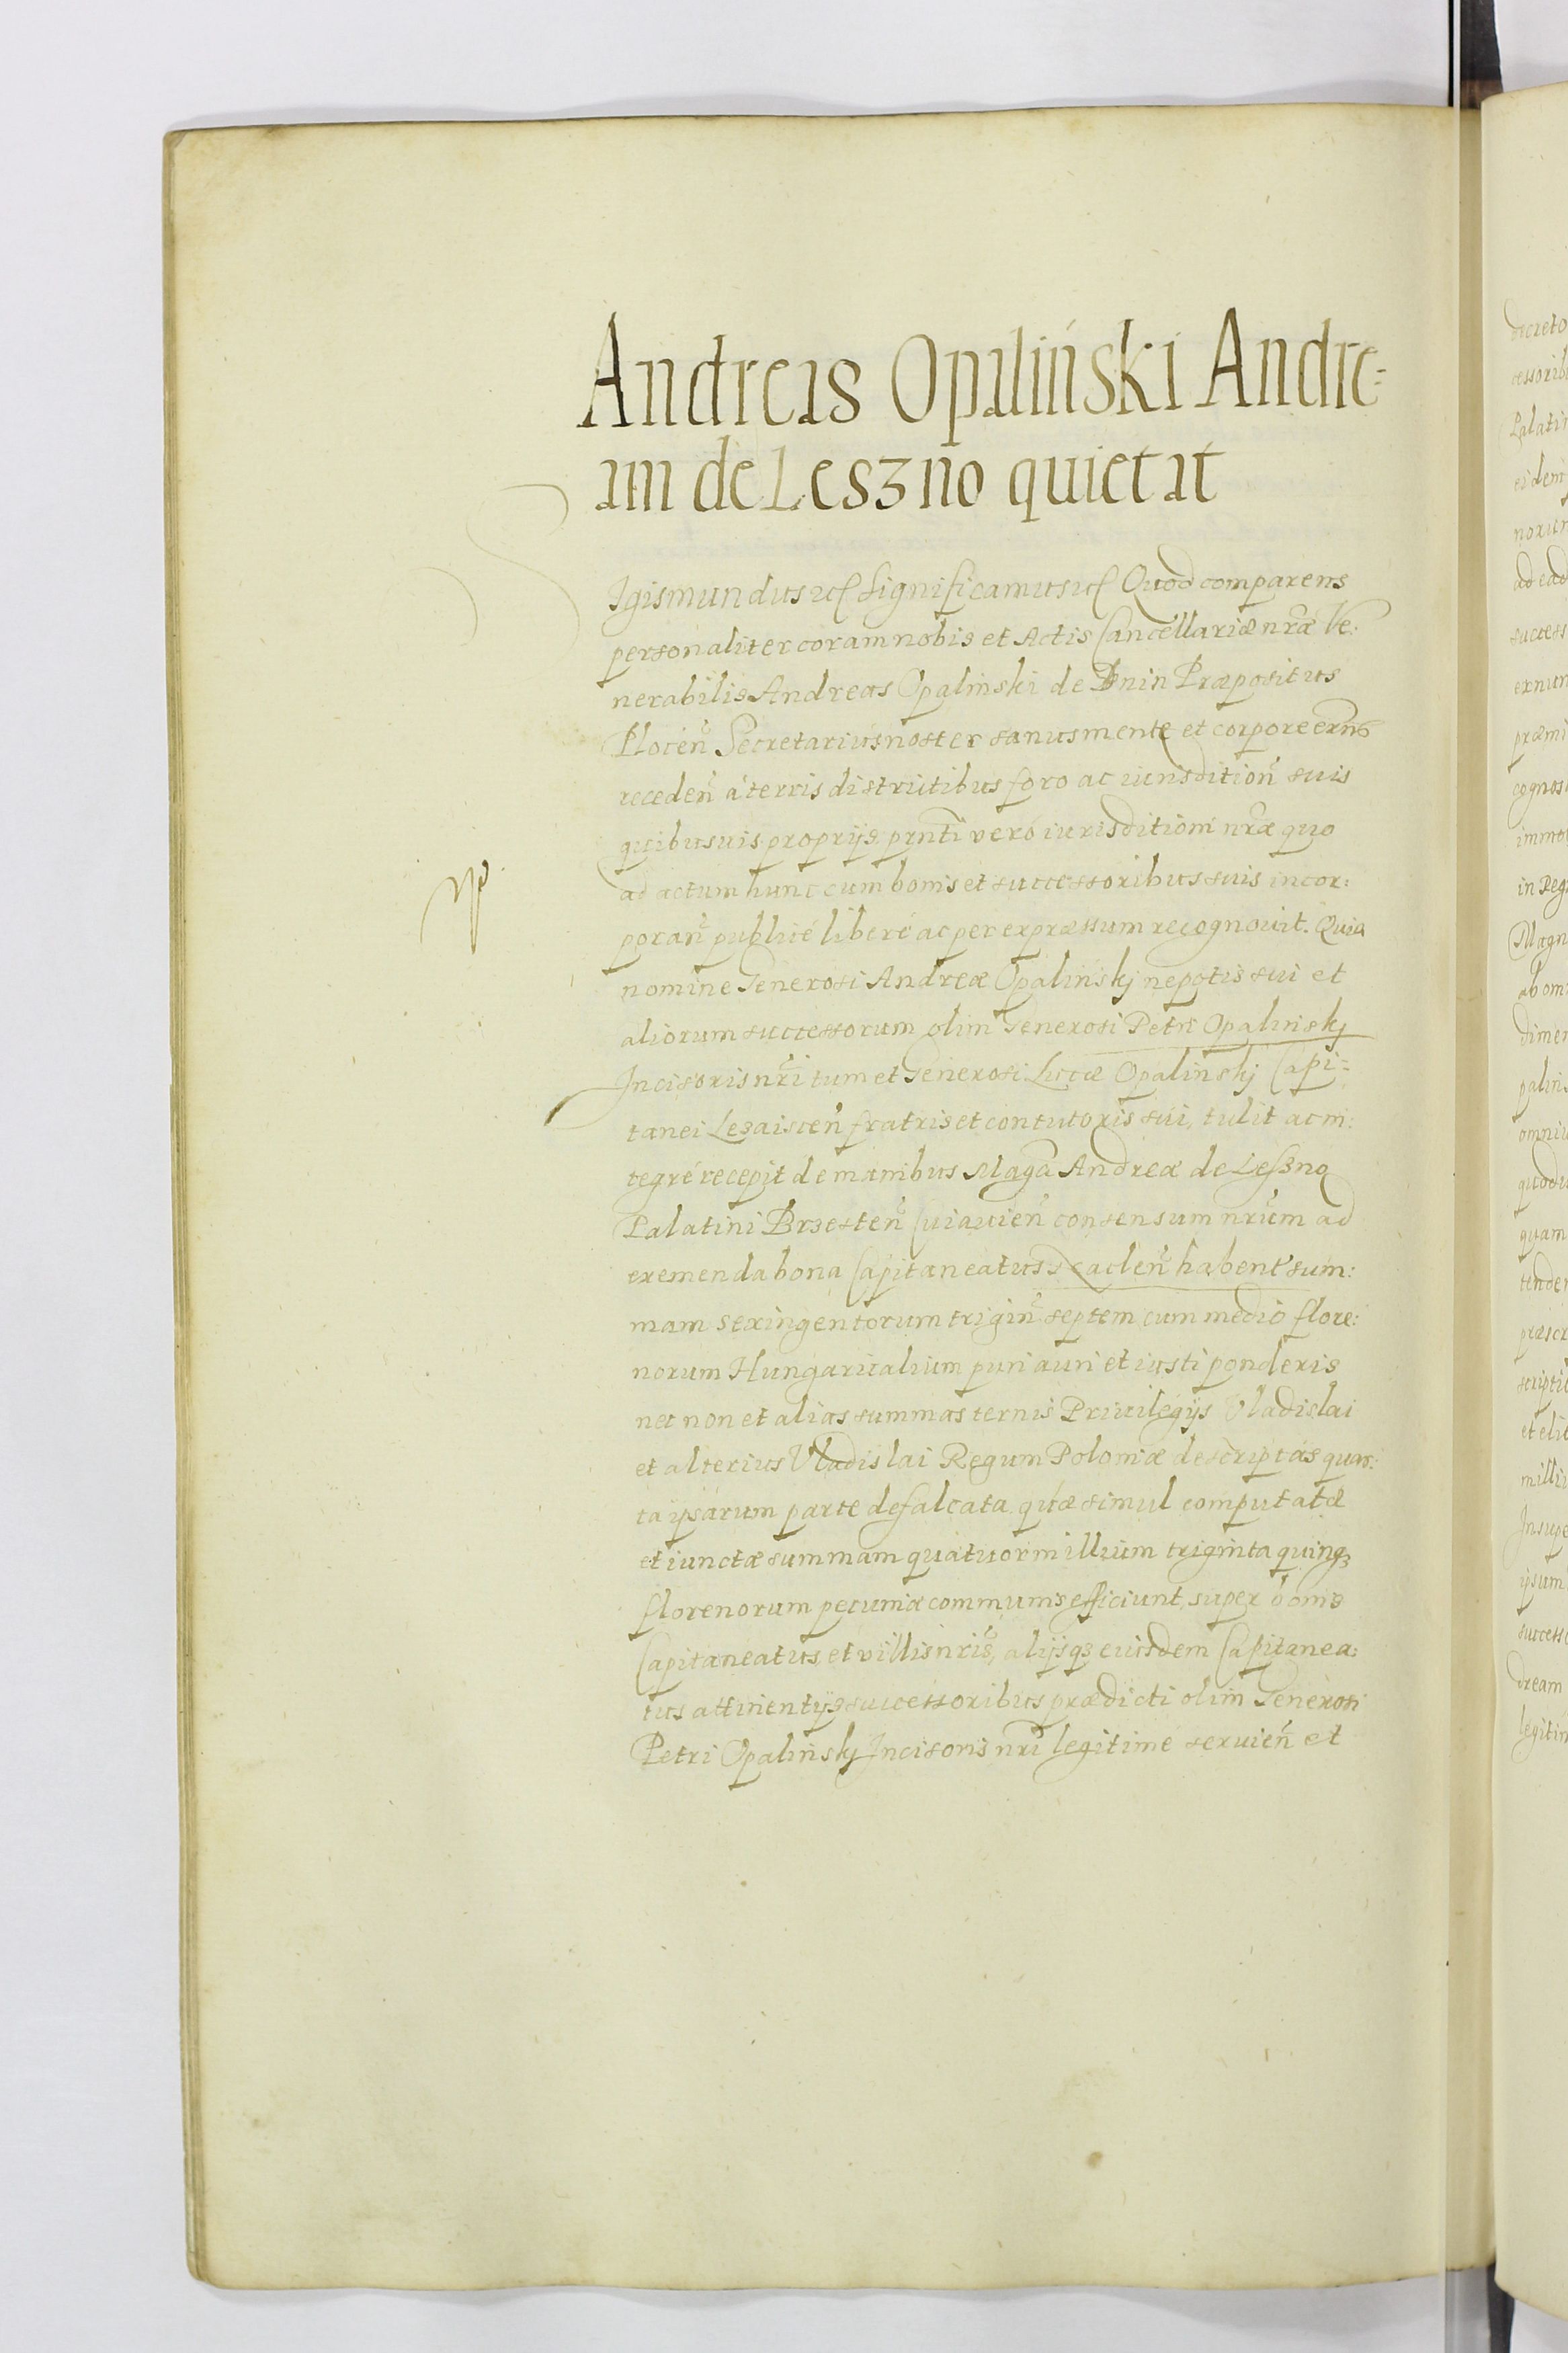 Andreas Opaliński Andre=
am de Leszno quietat
Sigismundus etc. Significamus etc. Quod comparens
personaliter coram nobis et Actis Cancellariæ nr̃æ Ve:
nerabilis Andreas Opalinski de Bnin Præpositus
Plocen̄ Secretarius noster sanus mente et corpore
receden̄ á terris districtibus foro ac iurisdition̄ suis
quibusuis proprijs, prn̄ti veró iurisditioni nr̃æ quo
ad actum hunc cum bonis et successoribus suis incor:
poran̄ publicé liberé ac per expræssum recognouit. Quia
nomine Generosi Andreæ Opalińskj nepotis sui et
aliorum successorum olim Generosi Petri Opalinskj
Incisoris nr̃i tum et Generosi Lucæ Opalinskj Capi=
tanei Lezaiscen̄ fratris et contutoris sui, tulit ac in:
tegré recepit de manibus Magcā Andreæ de Leszno
Palatini Brzesten̄ Cuiauien̄ consensum nr̃um ad
exemenda bona Capitaneatus habent̄ sum:
mam sexingentorum trigin̄ septem cum medio flore:
norum Hungaricalium puri auri et iusti ponderis
nec non et alias summas ternis Priuilegijs Vladislai
et alterius Vladislai Regum Poloniæ descriptas quar:
ta ipsarum parte defalcata quæ simul computatæ
et iunctæ summam quatuor millium triginta quinqȝ
florenorum pecuniæ communis efficiunt, super bonis
Capitaneatus, et villis nr̃is, alijsqȝ eiusdem Capitanea:
tus attinentijs successoribus prædicti olim Generosi
Petri Opalinskj Incisoris nr̃i legitimé seruien̄ et